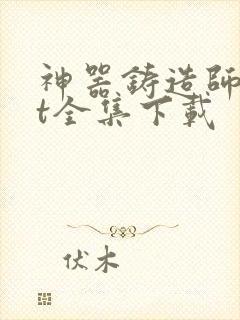 神器鋳造師
t全集下載
伏木